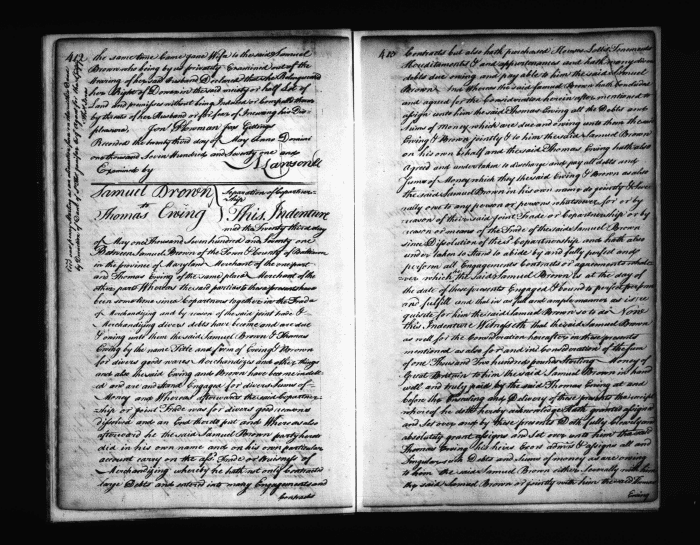 412
the same time Came Jane Wife to the said Samuel
Brown who being by us privately Examined out of the
Hearing of her said Husband Declared that she Relinquished
her Right of Dower in the said moiety or half Lot of
Land and premises without being Induced or Compelled thereto
by threats of her Husband or for fear of Incurring his Dis-
pleasure. Jon Plowman Jas Gittings
Recorded the twenty third day of May Anno Domini
one thousand Seven Hundred and Seventy one and
Examined by
Samuel Brown
to
Thomas Ewing
Separation of Copartner-
ship
This Indenture
made the Twenty third day
of May one Thousand Seven hundred and Seventy one
Between Samuel Brown of the Town & County of Baltimore
in the province of Maryland Merchant of the one part
and Thomas Ewing of the same place Merchant of the
other part Whereas the said parties to these presents have
been sometime since Copartners together in the Trade
of Merchandizing and by reason of the said joint trade &
Merchandizing divers debts have became and are due
& owing unto them the said Samuel Brown & Thomas
Ewing by the name Stile and form of Ewing & Brown
for divers goods wares Merchandizes and other things
and also the said Ewing and Brown have become indebt-
ed and are and stand Engaged for divers Sums of
Money and Whereas afterwards the said Copartner-
ship or joint Trade was for divers good reasons
disolved and an End thereto put and Whereas also
afterward he the said Samuel Brown
did in his own name and on his own particular
account carry on the Trade or Business of
Merchandizing whereby he hath not only Contracted
large Debts and entered into many Engagements and
Contracts
413
Contracts but also hath purchased Houses Lotts Tenements
Hereditaments & and appurtenances and hath many
debts due owing and pay able to him the said Samuel
Brown And Whereas the said Samuel Brown hath Concluded
and agreed for the Consideration herein after mentioned to
assign unto him the said Thomas Ewing all the Debts and
Sums of Money which are due and owing unto them the said
Ewing & Brown jointly & to him the said Samuel Brown
on his own behalf and the said Thomas Ewing hath also
agreed and undertaken to discharge and pay all debts and
Sums of Money which they the said Ewing & Brown as also
the said Samuel Brown in his own name do jointly or Seve-
rally owe to any person or persons whatsoever for or by
reason of the said joint Trade or Copartnership or by
reason or means of the Trade of the said Samuel Brown
since Disolution of the Copartnership and hath also
under taken to stand to abide by and fully perfect and
perform all Engagements Contracts & agreements whatso-
ever which the said Samuel Brown is at the day of
the date of these presents Engaged & bound to perfect perform
and fulfill and that in as full and ample manner as is re-
quisite for him the said Samuel Brown so to do Now
this Indenture Witnesseth that the said Samuel Brown
as well for the Consideration hereafter in these presents
mentioned as also for and in Consideration of the sum
of one Thousand Two hundred pounds Sterling Money of
Great Britain to him the said Samuel Brown in hand
well and truly paid by the said Thomas Ewing at and
before the Executing and Delivery of these presents the receipt
whereof he doth hereby acknowledge Hath granted assigned
and Set over and by these presents Doth fully clearly and
absolutely grant assign and set over unto him the said
Thomas Ewing his heirs Exors Admrs & assigns all and
Singular such Debts and Sums of money as are owing
to him the said Samuel Brown either Severally unto him
the said Samuel Brown or jointly with him the said Thomas
Ewing